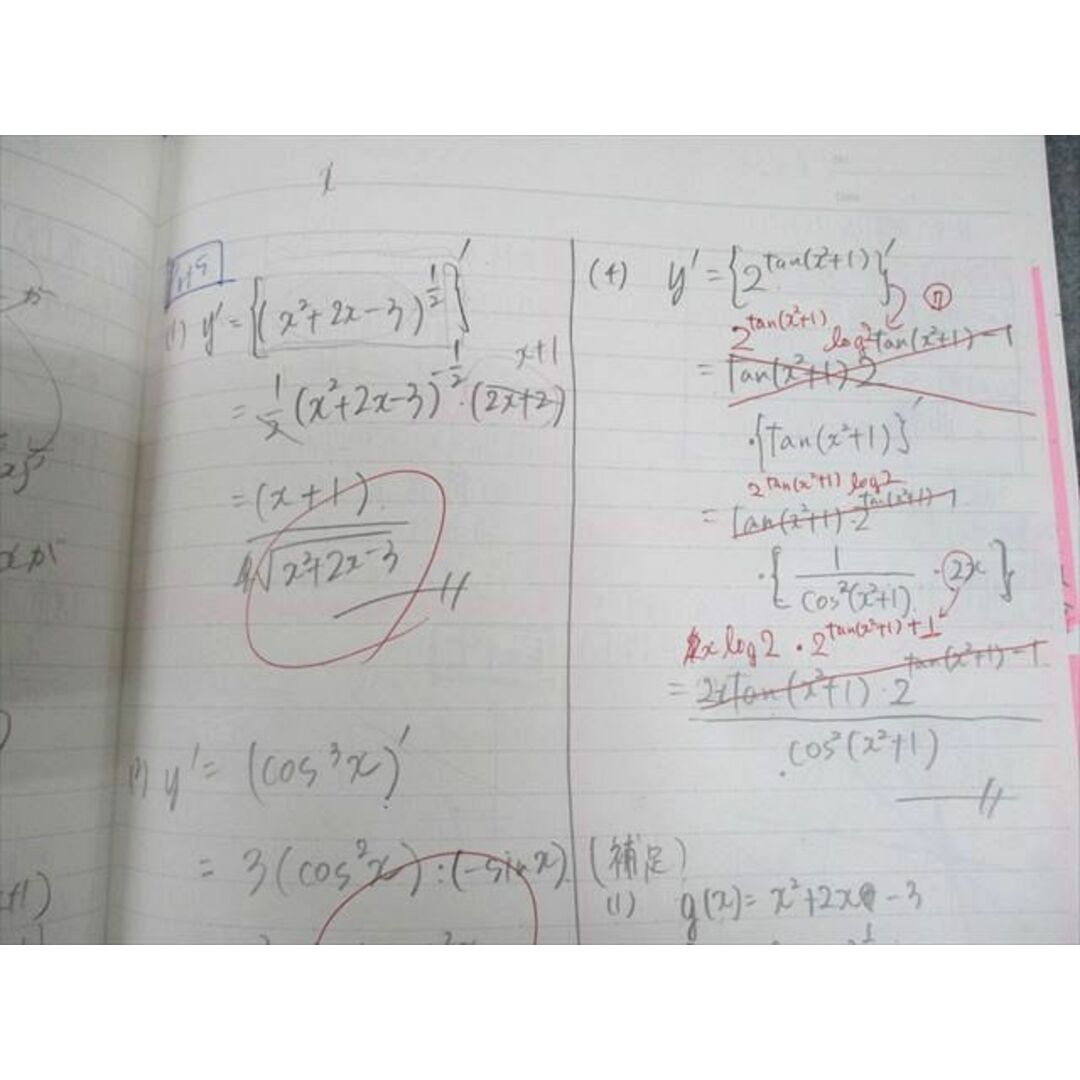 (1) y' = {(x²+2x-3)^{1/2}}'
x+1
= 1/2 (x²+2x-3)^{-1/2} · (2x+2)
= (x+1)
√x²+2x-3
y' = (cos³x)'
= 3(cos²x)·(-sinx)
(4) y' = {2^{tan(x²+1)}}'
2^{tan(x²+1)} log2 tan(x²+1)-1
= tan(x²+1) 2
·{tan(x²+1)}'
2^{tan(x²+1)} log2
= tan(x²+1)·2^{tan(x²+1)-1}
·{1/cos²(x²+1) · 2x}
x log2 · 2^{tan(x²+1)+1}
= 2x tan(x²+1)·2^{tan(x²+1)-1}
cos²(x²+1)
(補足)
(1) g(x)= x²+2x-3